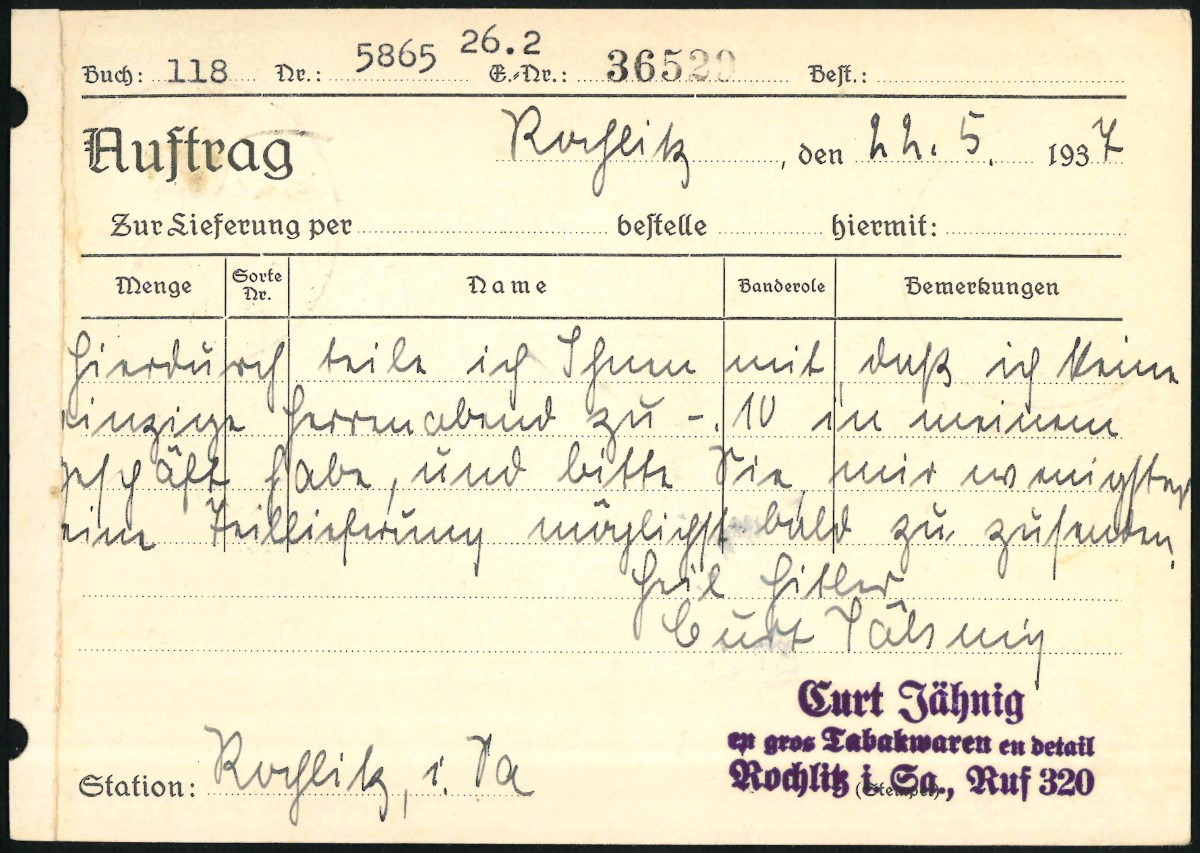 Buch: 118 Nr.: 5865 26.2 E.-Nr.: 36529 Best.:
Auftrag Rochlitz, den 22. 5. 1937
Zur Lieferung per bestelle hiermit:
Menge Sorte Nr. Name Banderole Bemerkungen
Hierdurch teile ich Ihnen mit, daß ich keine
einzige Herrenabend zu -.10 in meinem
Geschäft habe, und bitte Sie, mir wenigsten
eine Teillieferung möglichst bald zu zusenden.
Heil Hitler
Curt Jähnig
Curt Jähnig
en gros Tabakwaren en detail
Rochlitz i. Sa., Ruf 320
(Stempel)
Station: Rochlitz, i. Sa